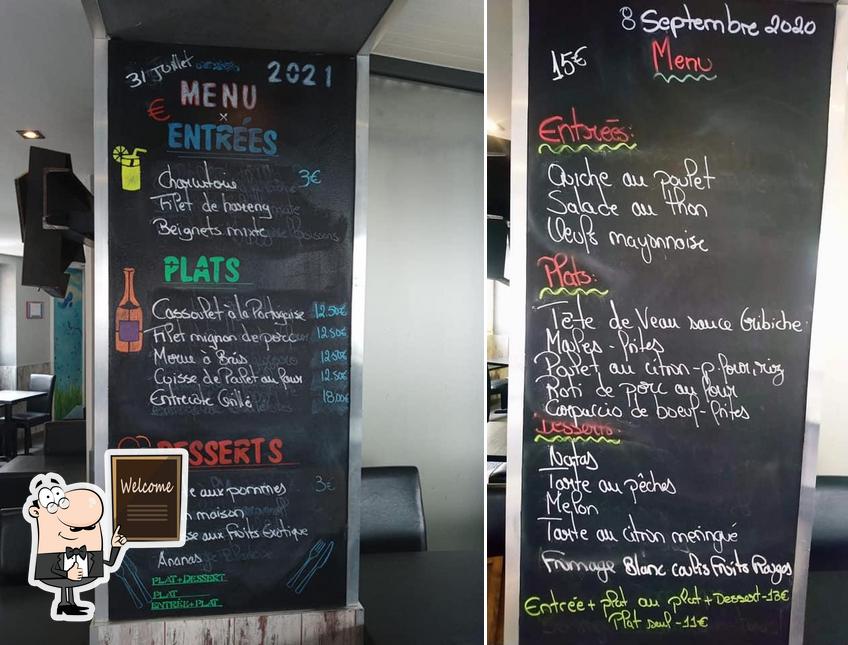 31 Juillet 2021
MENU
€
x
ENTRÉES
Charcuterie 3€
Filet de hareng
Beignets mixte
PLATS
Cassoulet à la Portugaise 12.50€
Filet mignon de porc 12.50€
Morue à Bras 12.50€
Cuisse de Poulet au four 12.50€
Entrecôte Grillé 18.00€
DESSERTS
aux pommes 3€
maison
aux fruits Exotique
Ananas
PLAT+DESSERT
PLAT
ENTRÉE+PLAT
Welcome
8 Septembre 2020
15€ Menu
Entrées:
Quiche au poulet
Salade au thon
Oeufs mayonnaise
Plats:
Tête de Veau sauce Gribiche
Moules - frites
Poulet au citron - p. four, riz
Roti de porc au four
Carpaccio de boeuf - frites
Desserts:
Natas
Tarte au pêches
Melon
Tarte au citron meringué
Fromage Blanc coulis Fruits Rouges
Entrée + plat ou plat + Dessert - 13€
Plat seul - 11€